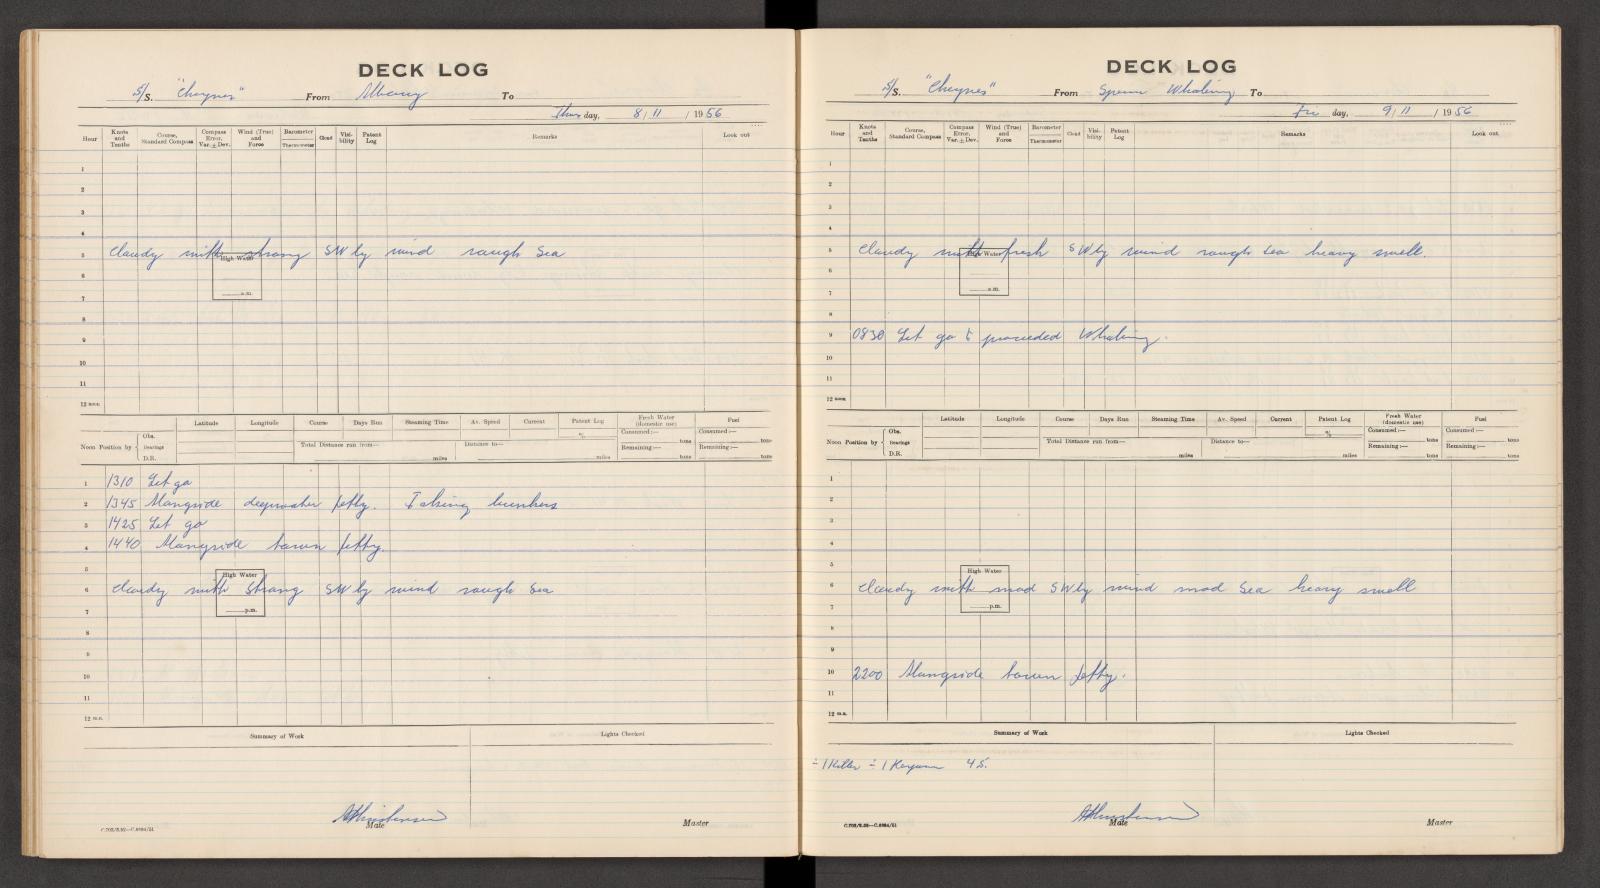 DECK LOG
S/S. "Cheynes" From Albany To
Thurs day, 8/11/1956
Hour Knots and Tenths Course, Standard Compass Compass Error, Var. ± Dev. Wind (True) and Force Barometer Thermometer Cloud Visi-bility Patent Log Remarks Look out
1
2
3
4
5 Cloudy with strong SWly wind rough sea
High Water
6
a.m.
7
8
9
10
11
12 noon
Latitude Longitude Course Days Run Steaming Time Av. Speed Current Patent Log Fresh Water (domestic use) Fuel
% Consumed:— tons Consumed:— tons
Noon Position by Obs. Bearings D.R. Total Distance run from— miles Distance to— miles Remaining:— tons Remaining:— tons
1 1310 Let go
2 1345 Alongside deepwater jetty. Taking bunkers
3 1425 Let go
4 1440 Alongside town jetty.
5
High Water
6 Cloudy with strong SWly wind rough sea
7 p.m.
8
9
10
11
12 m.n.
Summary of Work Lights Checked
Mate Master
C.702/8.52—C.8984/51
DECK LOG
S/S. "Cheynes" From Sperm Whaling To
Fri day, 9/11/1956
Hour Knots and Tenths Course, Standard Compass Compass Error, Var. ± Dev. Wind (True) and Force Barometer Thermometer Cloud Visi-bility Patent Log Remarks Look out
1
2
3
4
5 Cloudy with fresh SWly wind rough sea heavy swell.
High Water
6
a.m.
7
8
9 0830 Let go & proceeded Whaling.
10
11
12 noon
Latitude Longitude Course Days Run Steaming Time Av. Speed Current Patent Log Fresh Water (domestic use) Fuel
% Consumed:— tons Consumed:— tons
Noon Position by Obs. Bearings D.R. Total Distance run from— miles Distance to— miles Remaining:— tons Remaining:— tons
1
2
3
4
5
High Water
6 Cloudy with mod SWly wind mod sea heavy swell
7 p.m.
8
9
10 2200 Alongside town jetty.
11
12 m.n.
Summary of Work Lights Checked
÷ 1 Killer ÷ 1 45.
Mate Master
C.702/8.52—C.8984/51